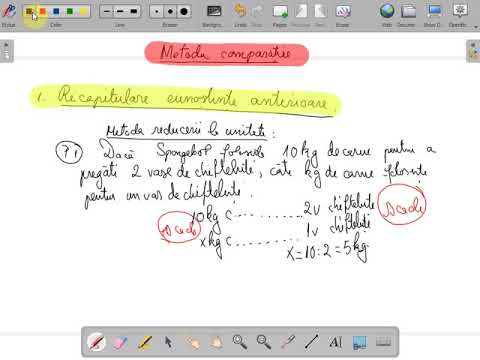 Stylus
Color
Line
Eraser
Backgro...
Undo
Redo
Erase
Previous
Next
Metoda comparatiei
1. Recapitulare cunostinte anterioare.
Metoda reducerii la unitate:
P1 Dacă Spongebob foloseste 10 kg de carne pentru a
pregăti 2 vase de chiftelute, câte kg de carne foloseste
pentru un vas de chiftelute.
10 kg c ............ 2v chiftelute
Scade
x kg c ............ 1v chiftelute
Scade
x = 10 : 2 = 5 kg